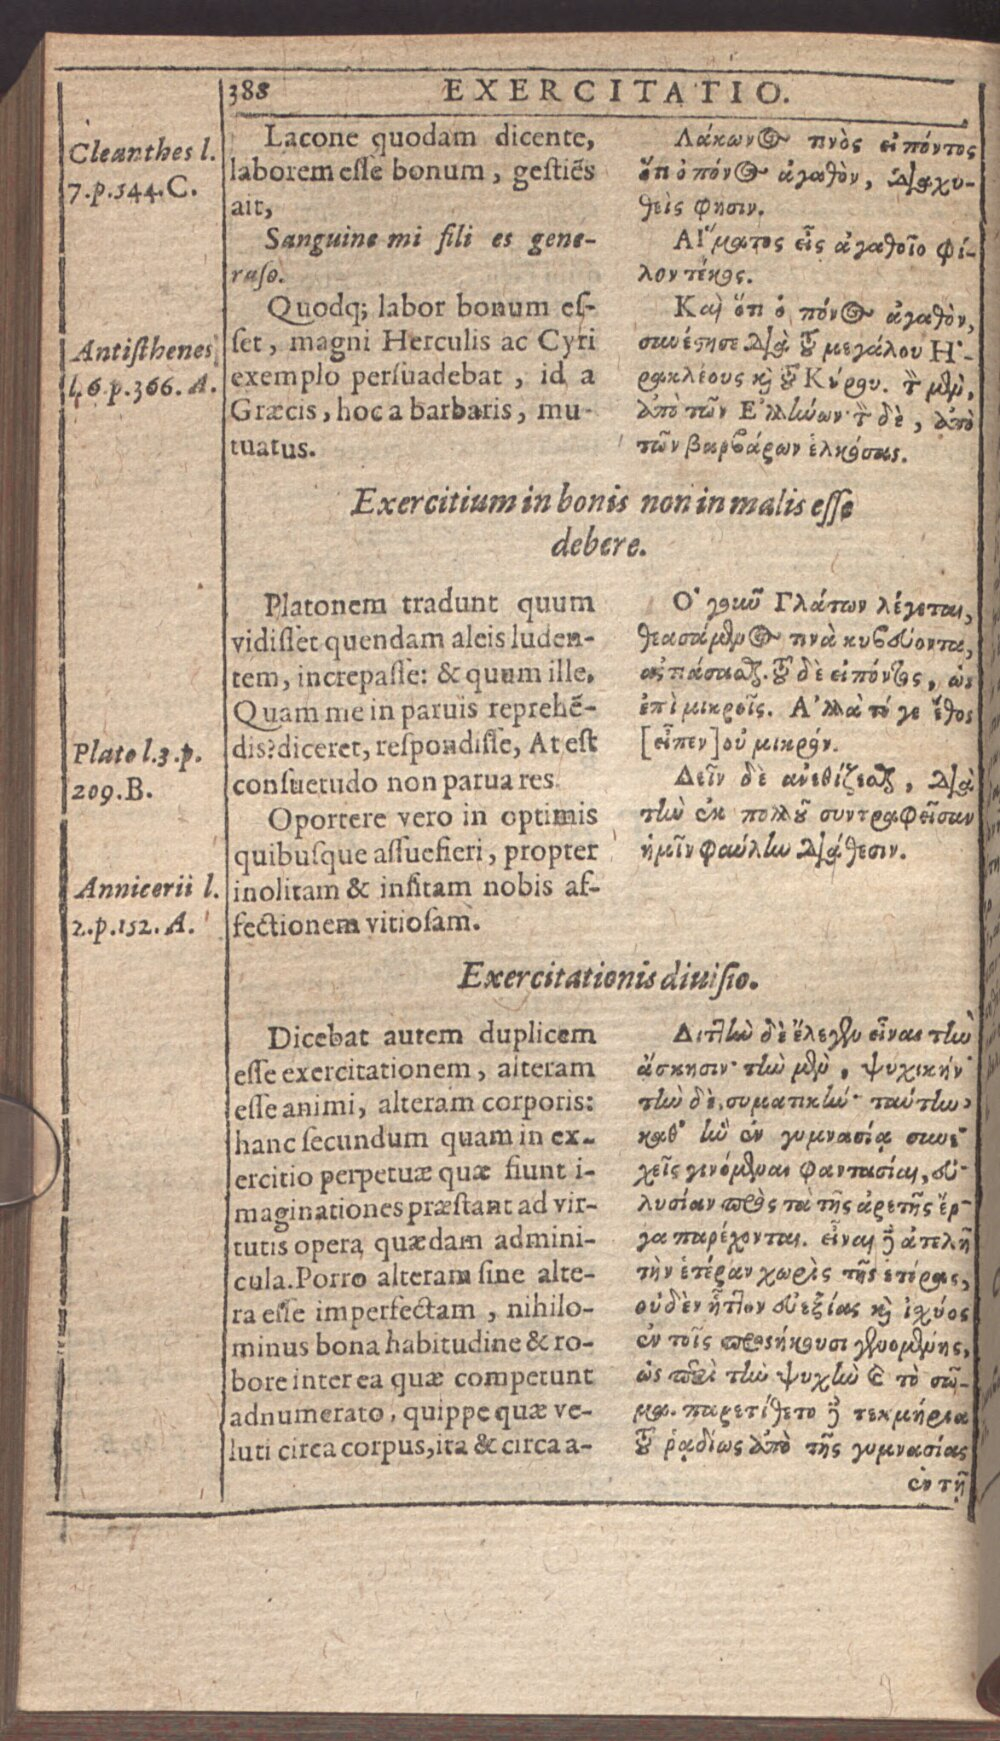 388
EXERCITATIO.
Cleanthes l.
7.p.544.C.
Antisthenes
l.6.p.366.A.
Plato l.3.p.
209.B.
Annicerii l.
2.p.152.A.
Lacone quodam dicente,
laborem esse bonum, gestiẽs
ait,
Sanguine mi fili es gene-
raso.
Quodq; labor bonum es-
set, magni Herculis ac Cyri
exemplo persuadebat, id a
Græcis, hoc a barbaris, mu-
tuatus.
Λάκωνος τινὸς εἰπόντος
ὅτι ὁ πόνος ἀγαθὸν, διαχυ-
θεὶς φησιν.
Αἵματος εἶς ἀγαθοῖο φί-
λον τέκος.
Καὶ ὅτι ὁ πόνος ἀγαθὸν,
συνέστησε διὰ τοῦ μεγάλου Ἡ-
ρακλέους καὶ τοῦ Κύρου. τὸ μὲν,
ἀπὸ τῶν Ἑλλήνων· τὸ δὲ, ἀπὸ
τῶν βαρβάρων ἑλκύσας.
Exercitium in bonis non in malis esse
debere.
Platonem tradunt quum
vidisset quendam aleis luden-
tem, increpasse: & quum ille,
Quam me in paruis reprehẽ-
dis? diceret, respondisse, At est
consuetudo non parua res.
Oportere vero in optimis
quibusque assuefieri, propter
inolitam & insitam nobis af-
fectionem vitiosam.
Ὁ γοιοῦ Γλάτων λέγεται,
θεασάμενος τινὰ κυβεύοντα,
αἰτιάσασθαι. τοῦ δὲ εἰπόντος, ὡς
ἐπὶ μικροῖς. Ἀλλὰ τό γε ἔθος
[εἶπεν] οὐ μικρόν.
Δεῖν δὲ ἀνεθίζεσθαι, διὰ
τὴν ἐκ πολλοῦ συντραφεῖσαν
ἡμῖν φαύλην διάθεσιν.
Exercitationis diuisio.
Dicebat autem duplicem
esse exercitationem, alteram
esse animi, alteram corporis:
hanc secundum quam in ex-
ercitio perpetuæ quæ fiunt i-
maginationes præstant ad vir-
tutis opera quædam admini-
cula. Porro alteram sine alte-
ra esse imperfectam, nihilo-
minus bona habitudine & ro-
bore inter ea quæ competunt
adnumerato, quippe quæ ve-
luti circa corpus, ita & circa a-
Διττὴν δὲ ἔλεγεν εἶναι τὴν
ἄσκησιν· τὴν μὲν, ψυχικήν·
τὴν δὲ, σωματικήν· ταύτην,
καθ' ἣν ἐν γυμνασίᾳ συνε-
χεῖς γινόμεναι φαντασίαι, εὐ-
λυσίαν πρὸς τὰ τῆς ἀρετῆς ἔρ-
γα παρέχονται. εἶναι δὲ ἀτελῆ
τὴν ἑτέραν χωρὶς τῆς ἑτέρας,
οὐδὲν ἧττον εὐεξίας καὶ ἰχύος
ἐν τοῖς προσήκουσι γενομένης,
ὡς περὶ τὴν ψυχὴν καὶ τὸ σῶ-
μα. παρετίθετο δὲ τεκμήρια
τοῦ ῥᾳδίως ἀπὸ τῆς γυμνασίας
ἐν τῇ